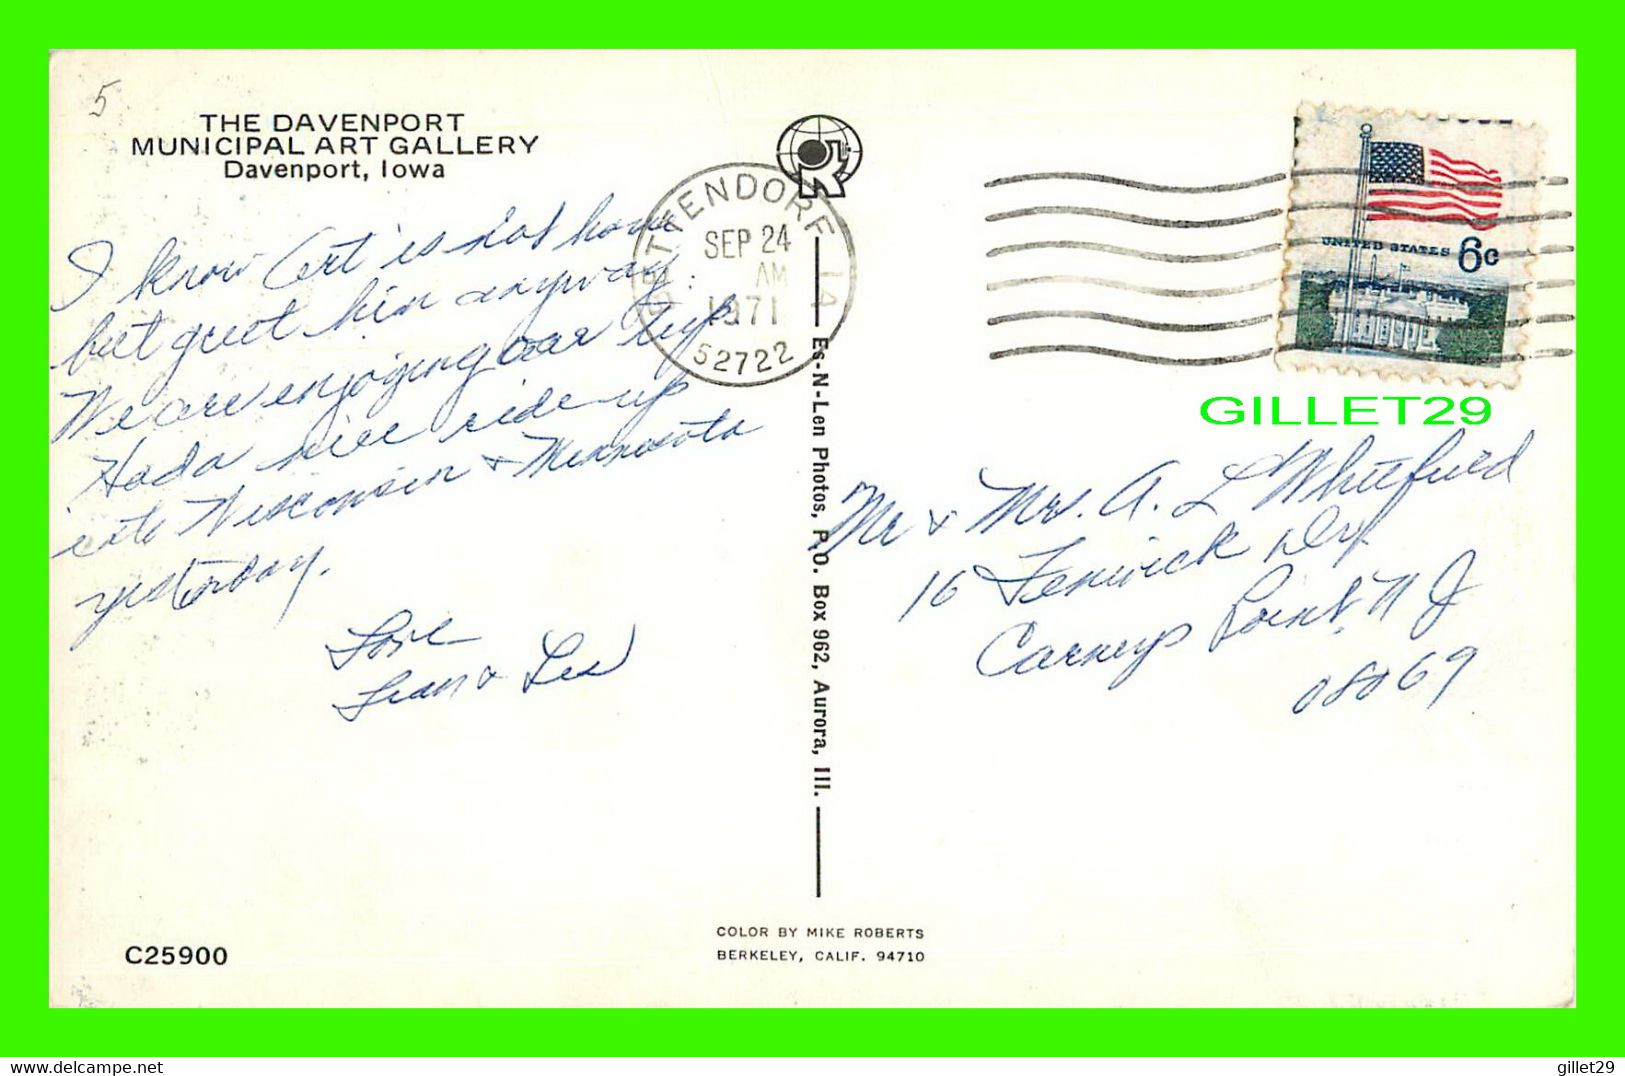 5
THE DAVENPORT
MUNICIPAL ART GALLERY
Davenport, Iowa
I know Art is not home
but greet him anyway.
We are enjoying our trip.
Had a nice ride up
into Wisconsin & Minnesota
yesterday.
Love
& Les
C25900
BETTENDORF IA
SEP 24
AM
1971
52722
Es-N-Len Photos, P.O. Box 962, Aurora, Ill.
COLOR BY MIKE ROBERTS
BERKELEY, CALIF. 94710
UNITED STATES 6c
GILLET29
Mr & Mrs. A. L. Whiteford
16 Fenwick Dr
Carneys Point, N J
08069
delcampe.net
gillet29